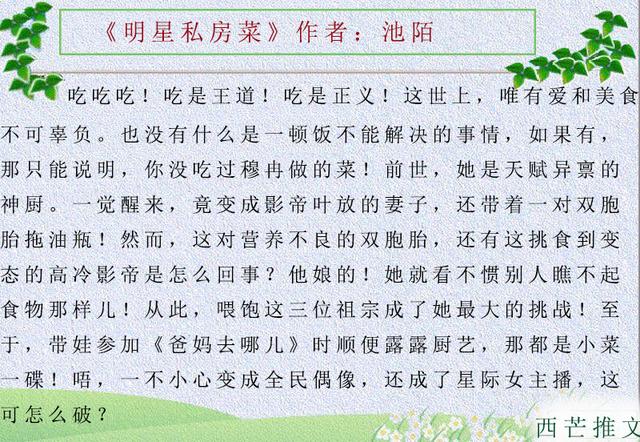 《明星私房菜》作者：池陌
吃吃吃！吃是王道！吃是正义！这世上，唯有爱和美食
不可辜负。也没有什么是一顿饭不能解决的事情，如果有，
那只能说明，你没吃过穆冉做的菜！前世，她是天赋异禀的
神厨。一觉醒来，竟变成影帝叶放的妻子，还带着一对双胞
胎拖油瓶！然而，这对营养不良的双胞胎，还有这挑食到变
态的高冷影帝是怎么回事？他娘的！她就看不惯别人瞧不起
食物那样儿！从此，喂饱这三位祖宗成了她最大的挑战！至
于，带娃参加《爸妈去哪儿》时顺便露露厨艺，那都是小菜
一碟！唔，一不小心变成全民偶像，还成了星际女主播，这
可怎么破？
西芒推文